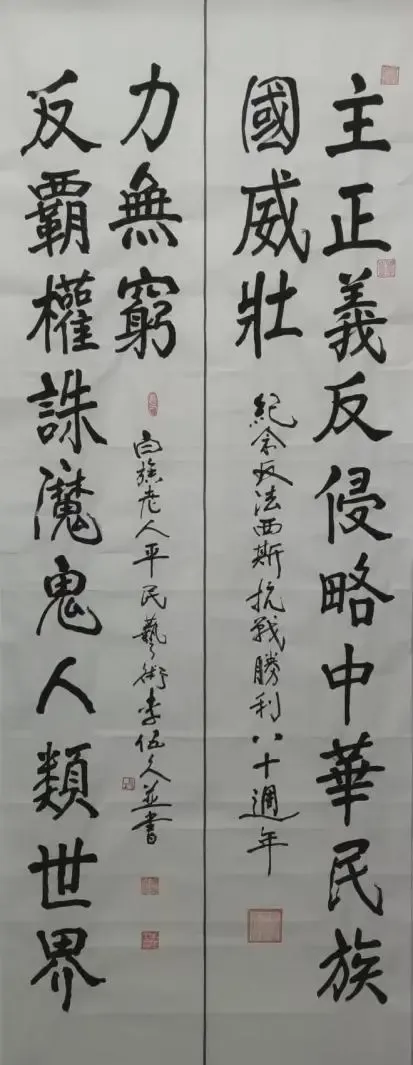 主正義反侵略中華民族
國威壯
紀念反法西斯抗戰勝利八十週年
反霸權誅魔鬼人類世界
力無窮
白族老人平民藝術李伍久並書